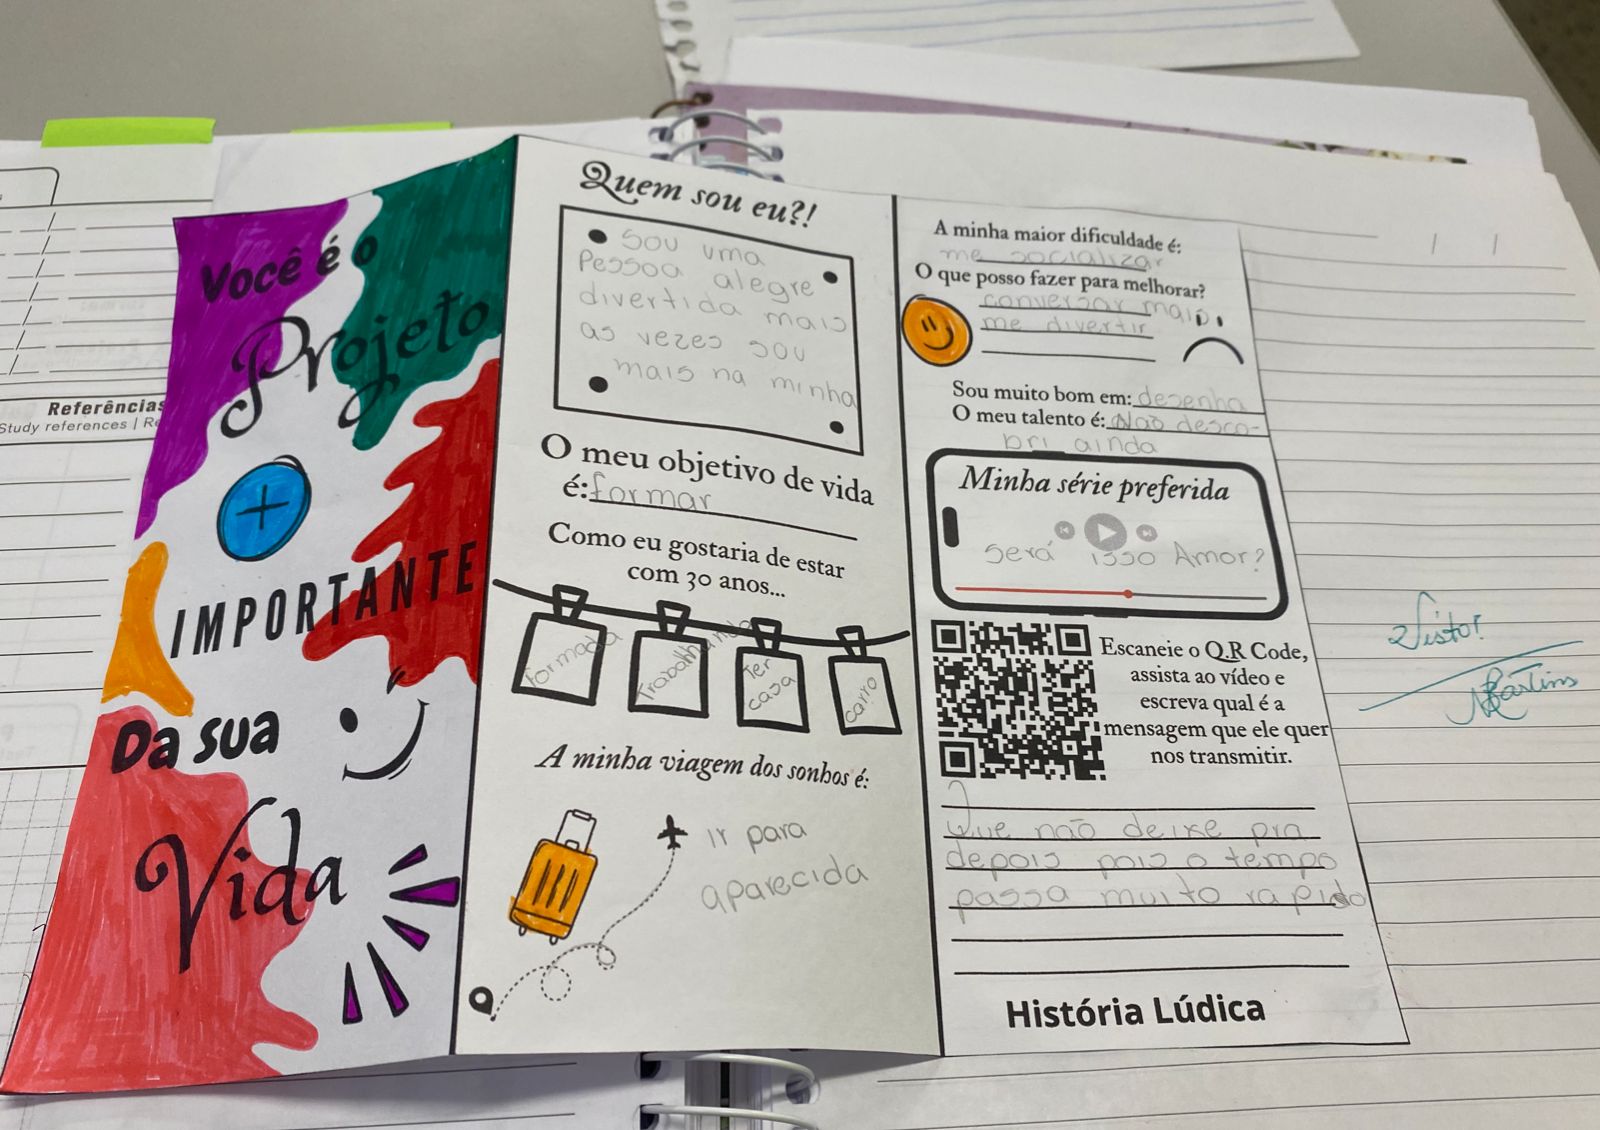 Referências
Study references | Re
Você é o
Projeto
+
IMPORTANTE
Da sua
Vida
Quem sou eu?!
Sou uma
Pessoa alegre
divertida mais
as vezes sou
mais na minha
O meu objetivo de vida
é: formar
Como eu gostaria de estar
com 30 anos...
formada
Trabalhando
Ter
casa
carro
A minha viagem dos sonhos é:
ir para
aparecida
A minha maior dificuldade é:
me socializar
O que posso fazer para melhorar?
conversar mais,
me divertir
Sou muito bom em: desenha
O meu talento é: Não desco-
bri ainda
Minha série preferida
Será isso Amor?
Escaneie o Q.R Code,
assista ao vídeo e
escreva qual é a
mensagem que ele quer
nos transmitir.
Que não deixe pra
depois pois o tempo
passa muito rapido
História Lúdica
Visto!